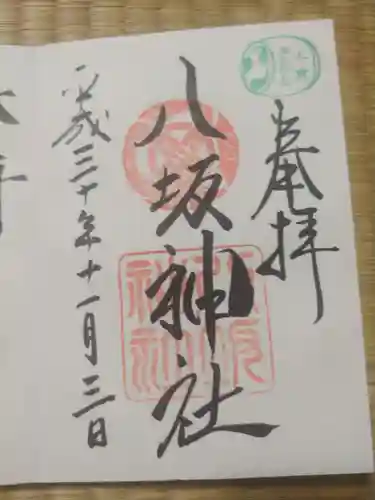 奉拝
八坂神社
平成三十年十一月三日